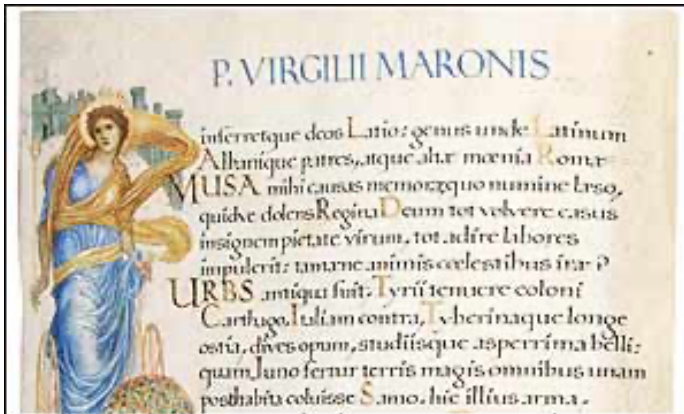 P. VIRGILII MARONIS
inferretque deos Latio: genus unde Latinum
Albanique patres, atque altæ mœnia Romæ
MUSA mihi causas memora; quo numine læso,
quidve dolens Regina Deum tot volvere casus
insignem pietate virum, tot adire labores
impulerit: tantæne animis cœlestibus iræ?
URBS antiqua fuit, Tyrii tenuere coloni
Carthago, Italiam contra, Tyberinaque longe
ostia, dives opum, studiisque asperrima belli:
quam Juno fertur terris magis omnibus unam
posthabita coluisse Samo. hic illius arma.